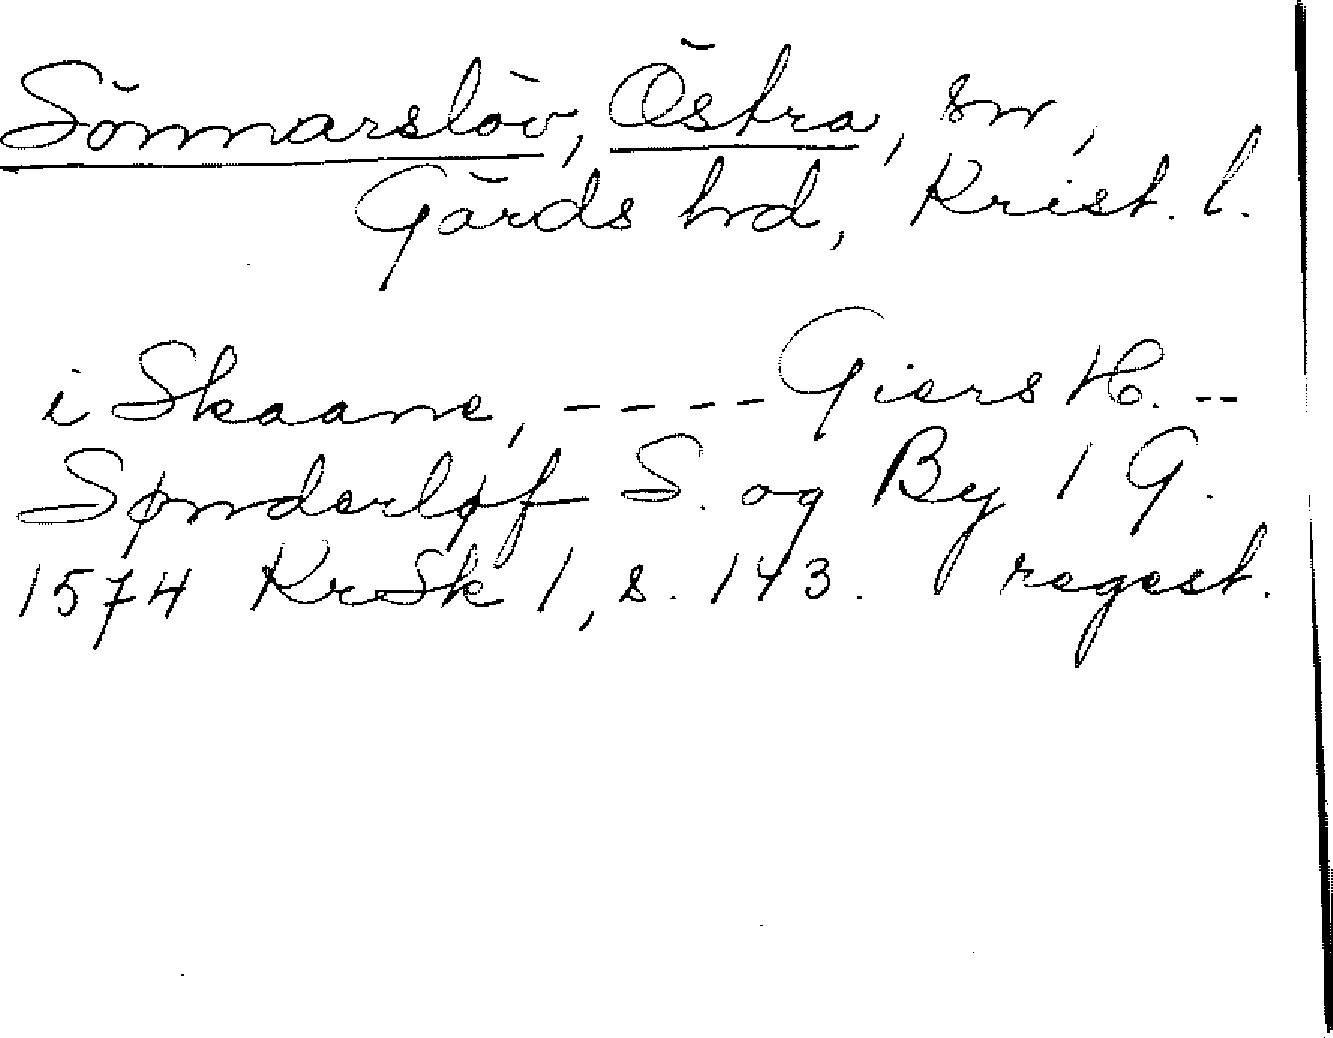 Sönnarslöv, Östra, sn,
Gärds hd, Krist. l.
i Skaane, ---- Giers H. --
Sønderløf S. og By 1 G.
1574 KrSk 1, s. 143. regest.